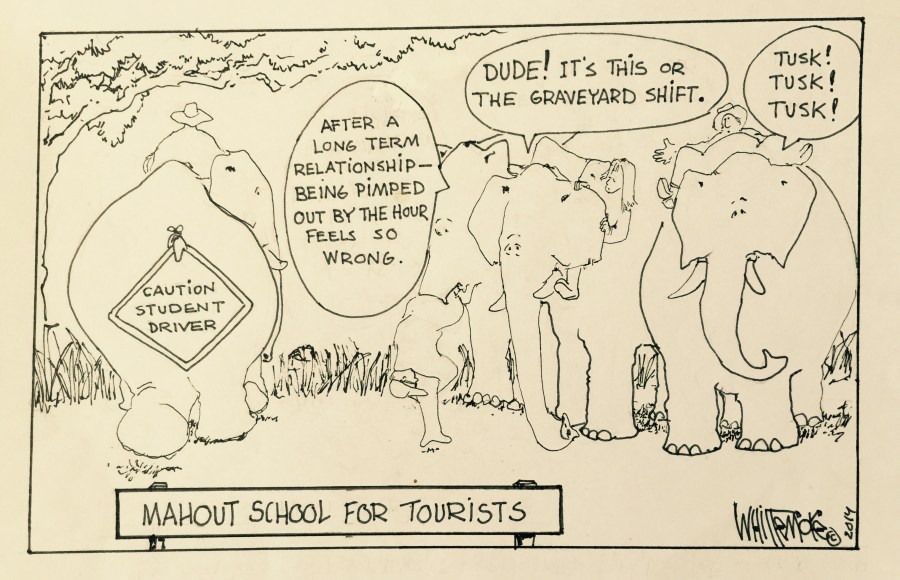 AFTER A
LONG TERM
RELATIONSHIP—
BEING PIMPED
OUT BY THE HOUR
FEELS SO
WRONG.
DUDE! IT'S THIS OR
THE GRAVEYARD SHIFT.
TUSK!
TUSK!
TUSK!
CAUTION
STUDENT
DRIVER
MAHOUT SCHOOL FOR TOURISTS
WHITTEMORE © 2014